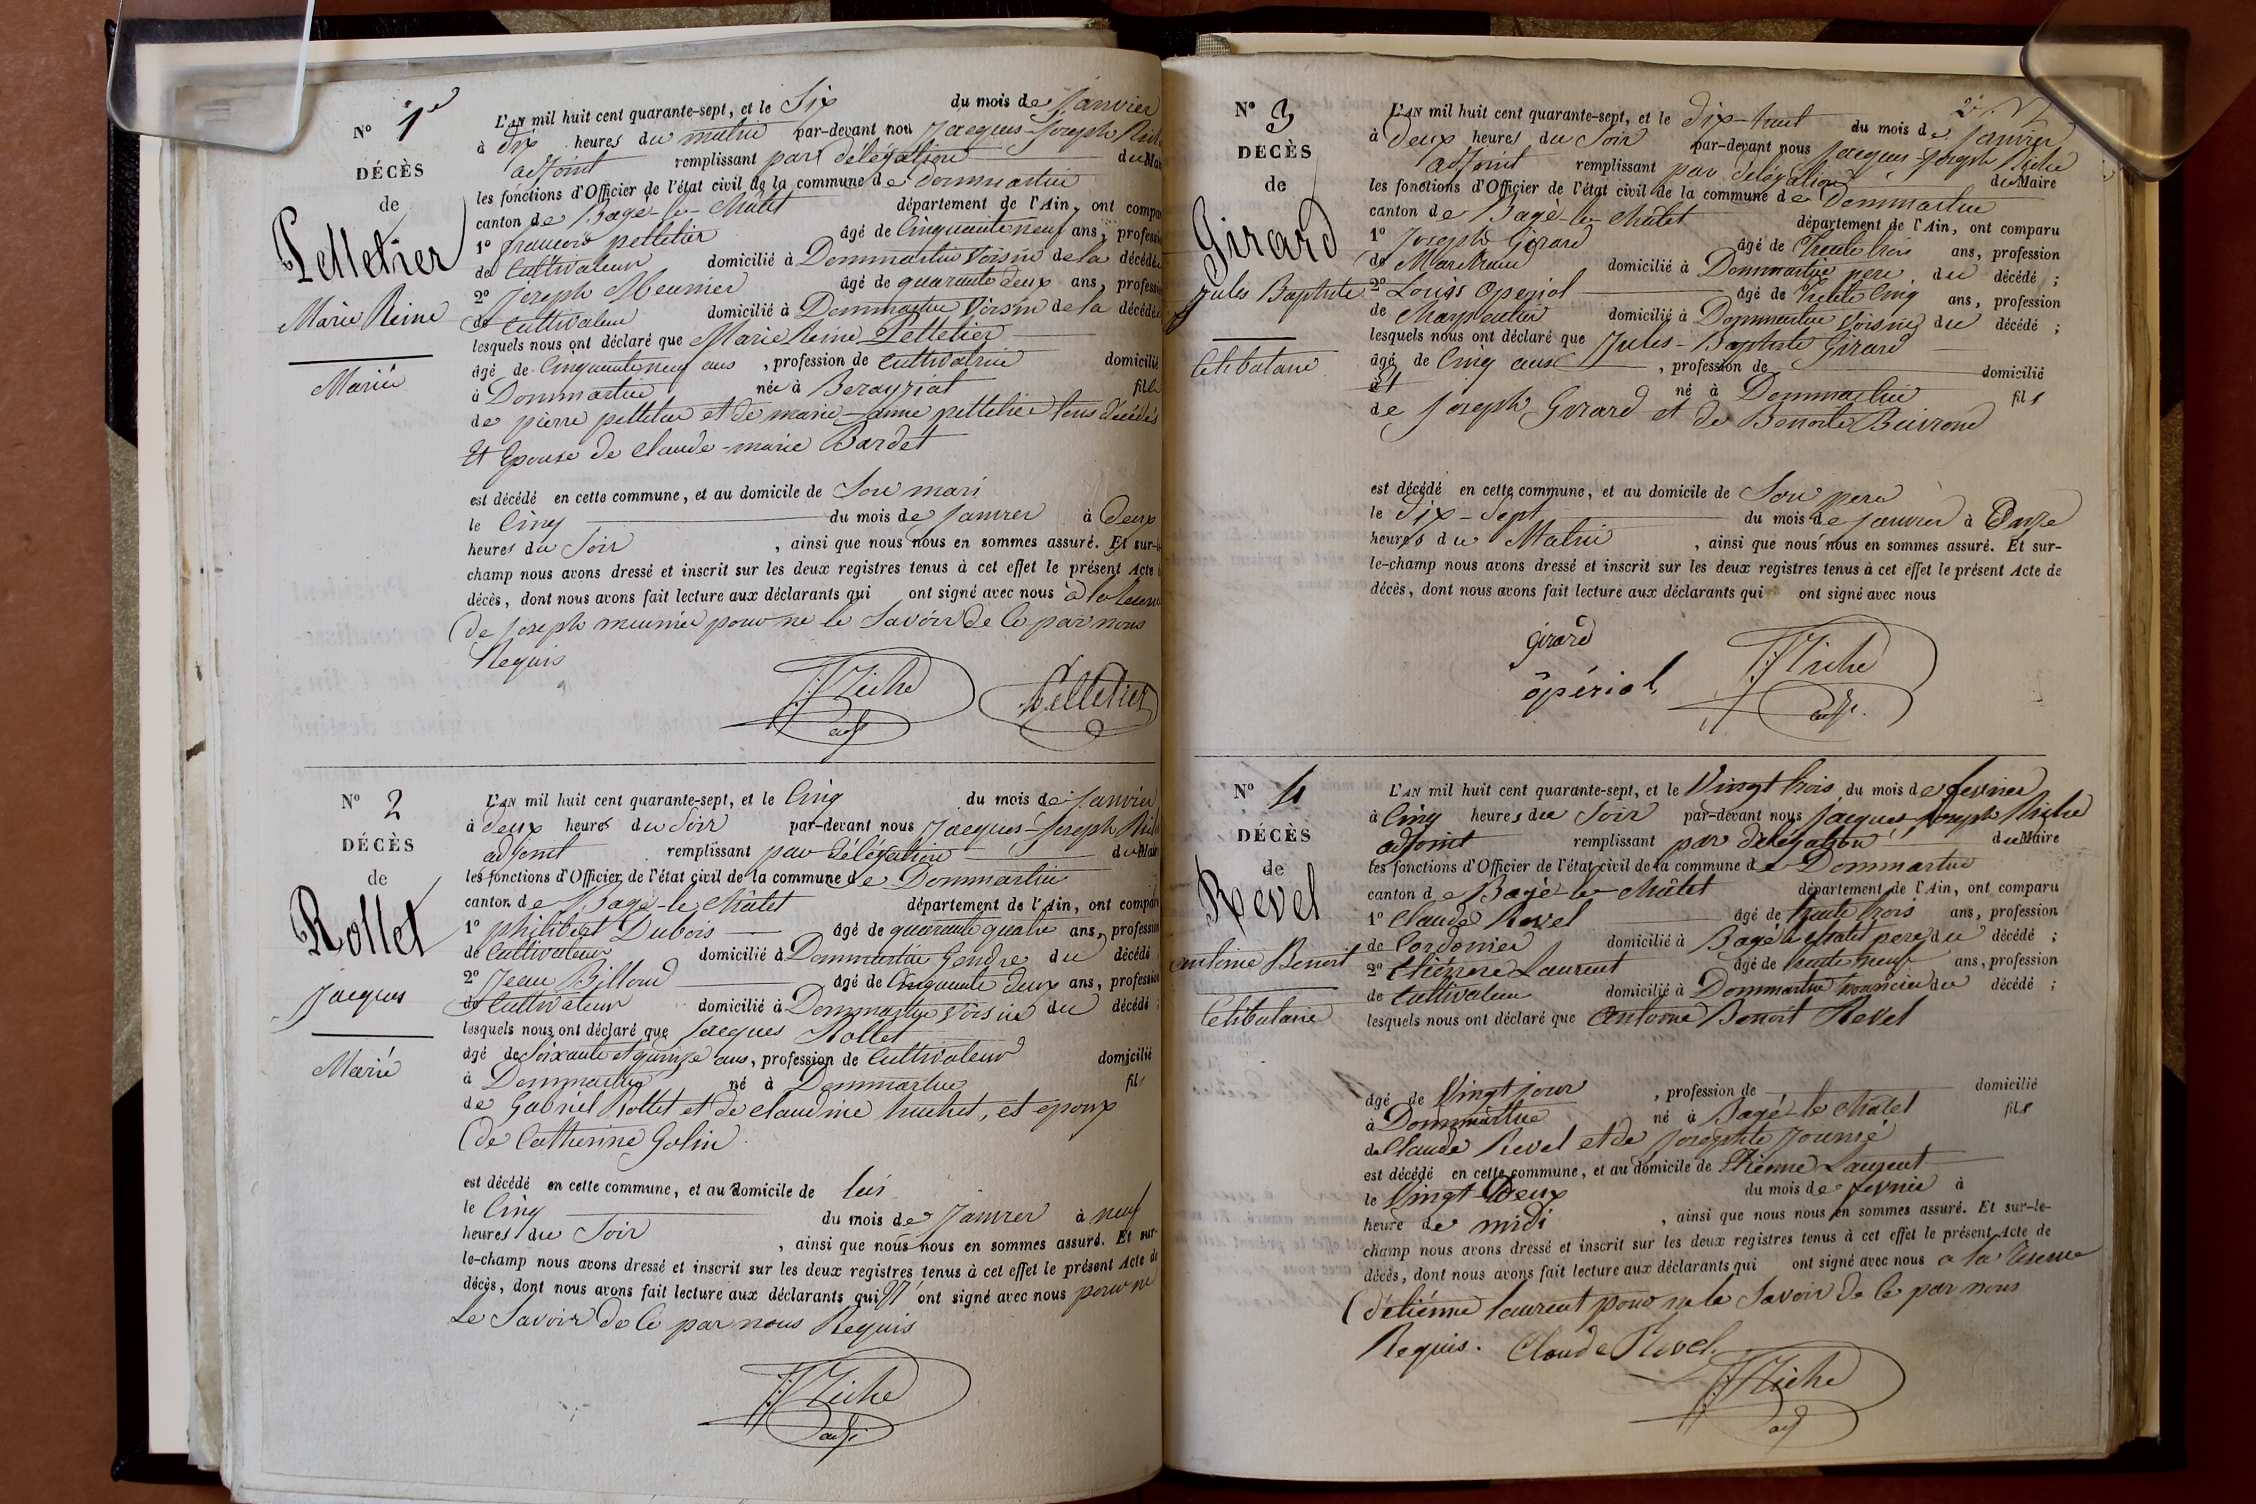 N° 1er
DÉCÈS
de
Pelletier
Marie Reine
Mariée
L'AN mil huit cent quarante-sept, et le Six du mois de Janvier
à dix heures du matin par-devant nou Jacques-Joseph
adjoint remplissant par délégation du Mai
les fonctions d'Officier de l'état civil de la commune de Dommartin
canton de Bagé-le-Châtel département de l'Ain, ont compa
1° francois pelletier âgé de Cinquante neuf ans, professi
de Cultivateur domicilié à Dommartin Voisin de la décédée
2° joseph Meunier âgé de quarante deux ans, professi
de Cultivateur domicilié à Dommartin Voisin de la décédée
lesquels nous ont déclaré que Marie Reine Pelletier
âgé de Cinquante neuf ans, profession de Cultivatrice domicilié
à Dommartin née à Bereyziat fille
de pierre pelletier et de marie-anne pelletier tous décédés
Et Epouse de Claude-marie Bardet
est décédé en cette commune, et au domicile de Son mari
le Cinq du mois de Janvier à Deux
heures du Soir, ainsi que nous nous en sommes assuré. Et sur-le
champ nous avons dressé et inscrit sur les deux registres tenus à cet effet le présent Acte
décès, dont nous avons fait lecture aux déclarants qui ont signé avec nous à la
de joseph meunier pour ne le Savoir de Ce par nous
Requis
JJ Riche
adj
Pelletier
N° 2
DÉCÈS
de
Rollet
Jacques
Marié
L'AN mil huit cent quarante-sept, et le Cinq du mois de Janvier
à deux heures du Soir par-devant nous Jacques-Joseph
adjoint remplissant par délégation du Mair
les fonctions d'Officier de l'état civil de la commune de Dommartin
canton de Bagé-le Châtel département de l'Ain, ont compa
1° philibert Dubois âgé de quarante quatre ans, profession
de Cultivateur domicilié à Dommartin Gendre du décédé
2° Jean Billoud âgé de Cinquante deux ans, profession
de Cultivateur domicilié à Dommartin Voisin du décédé ;
lesquels nous ont déclaré que Jacques Rollet
âgé de Soixante et quinze ans, profession de Cultivateur domicilié
à Dommartin né à Dommartin fils
de Gabriel Rollet et de Claudine huchet, et époux
de Catherine Golin
est décédé en cette commune, et au domicile de lui
le Cinq du mois de Janvier à neuf
heures du Soir, ainsi que nous nous en sommes assuré. Et sur-
le-champ nous avons dressé et inscrit sur les deux registres tenus à cet effet le présent Acte de
décès, dont nous avons fait lecture aux déclarants qui n' ont signé avec nous pour ne
Le Savoir de Ce par nous Requis
JJ Riche
adj
N° 3
DÉCÈS
de
Girard
Jules Baptiste
Célibataire
L'AN mil huit cent quarante-sept, et le dix-huit du mois de Janvier
à deux heures du Soir par-devant nous Jacques-Joseph Riche
adjoint remplissant par délégation du Maire
les fonctions d'Officier de l'état civil de la commune de Dommartin
canton de Bagé-le-Châtel département de l'Ain, ont comparu
1° Joseph Girard âgé de Trente trois ans, profession
de domicilié à Dommartin pere du décédé ;
2° Louis Operiol âgé de Trente Cinq ans, profession
de Charpentier domicilié à Dommartin Voisin du décédé ;
lesquels nous ont déclaré que Jules-Baptiste Girard
âgé de Cinq ans, profession de domicilié
à né à Dommartin fils
de Joseph Girard et de Benoite Buirond
est décédé en cette commune, et au domicile de Son pere
le dix-Sept du mois de Janvier à Onze
heures du Matin, ainsi que nous nous en sommes assuré. Et sur-
le-champ nous avons dressé et inscrit sur les deux registres tenus à cet effet le présent Acte de
décès, dont nous avons fait lecture aux déclarants qui ont signé avec nous
girard
opériol
JJ Riche
adj.
N° 4
DÉCÈS
de
Revel
antoine Benoit
Célibataire
L'AN mil huit cent quarante-sept, et le Vingt trois du mois de fevrier
à Cinq heures du Soir par-devant nous Jacques-Joseph Riche
adjoint remplissant par délégation du Maire
les fonctions d'Officier de l'état civil de la commune de Dommartin
canton de Bagé-le-Châtel département de l'Ain, ont comparu
1° Claude Revel âgé de trente trois ans, profession
de Cordonier domicilié à Bagé le Chatel pere du décédé ;
2° Etiénne Laurent âgé de trente neuf ans, profession
de Cultivateur domicilié à Dommartin nouricier du décédé ;
lesquels nous ont déclaré que Antoine Benoit Revel
âgé de Vingt jour, profession de domicilié
à Dommartin né à Bagé-le Chatel fils
de Claude Revel et de Josephte
est décédé en cette commune, et au domicile de Etienne Laurent
le Vingt Deux du mois de fevrier à
heure de midi, ainsi que nous nous en sommes assuré. Et sur-le-
champ nous avons dressé et inscrit sur les deux registres tenus à cet effet le présent Acte de
décès, dont nous avons fait lecture aux déclarants qui ont signé avec nous a la
d'etiénne laurent pour ne le Savoir de Ce par nous
Requis. Claude Revel.
JJ Riche
adj